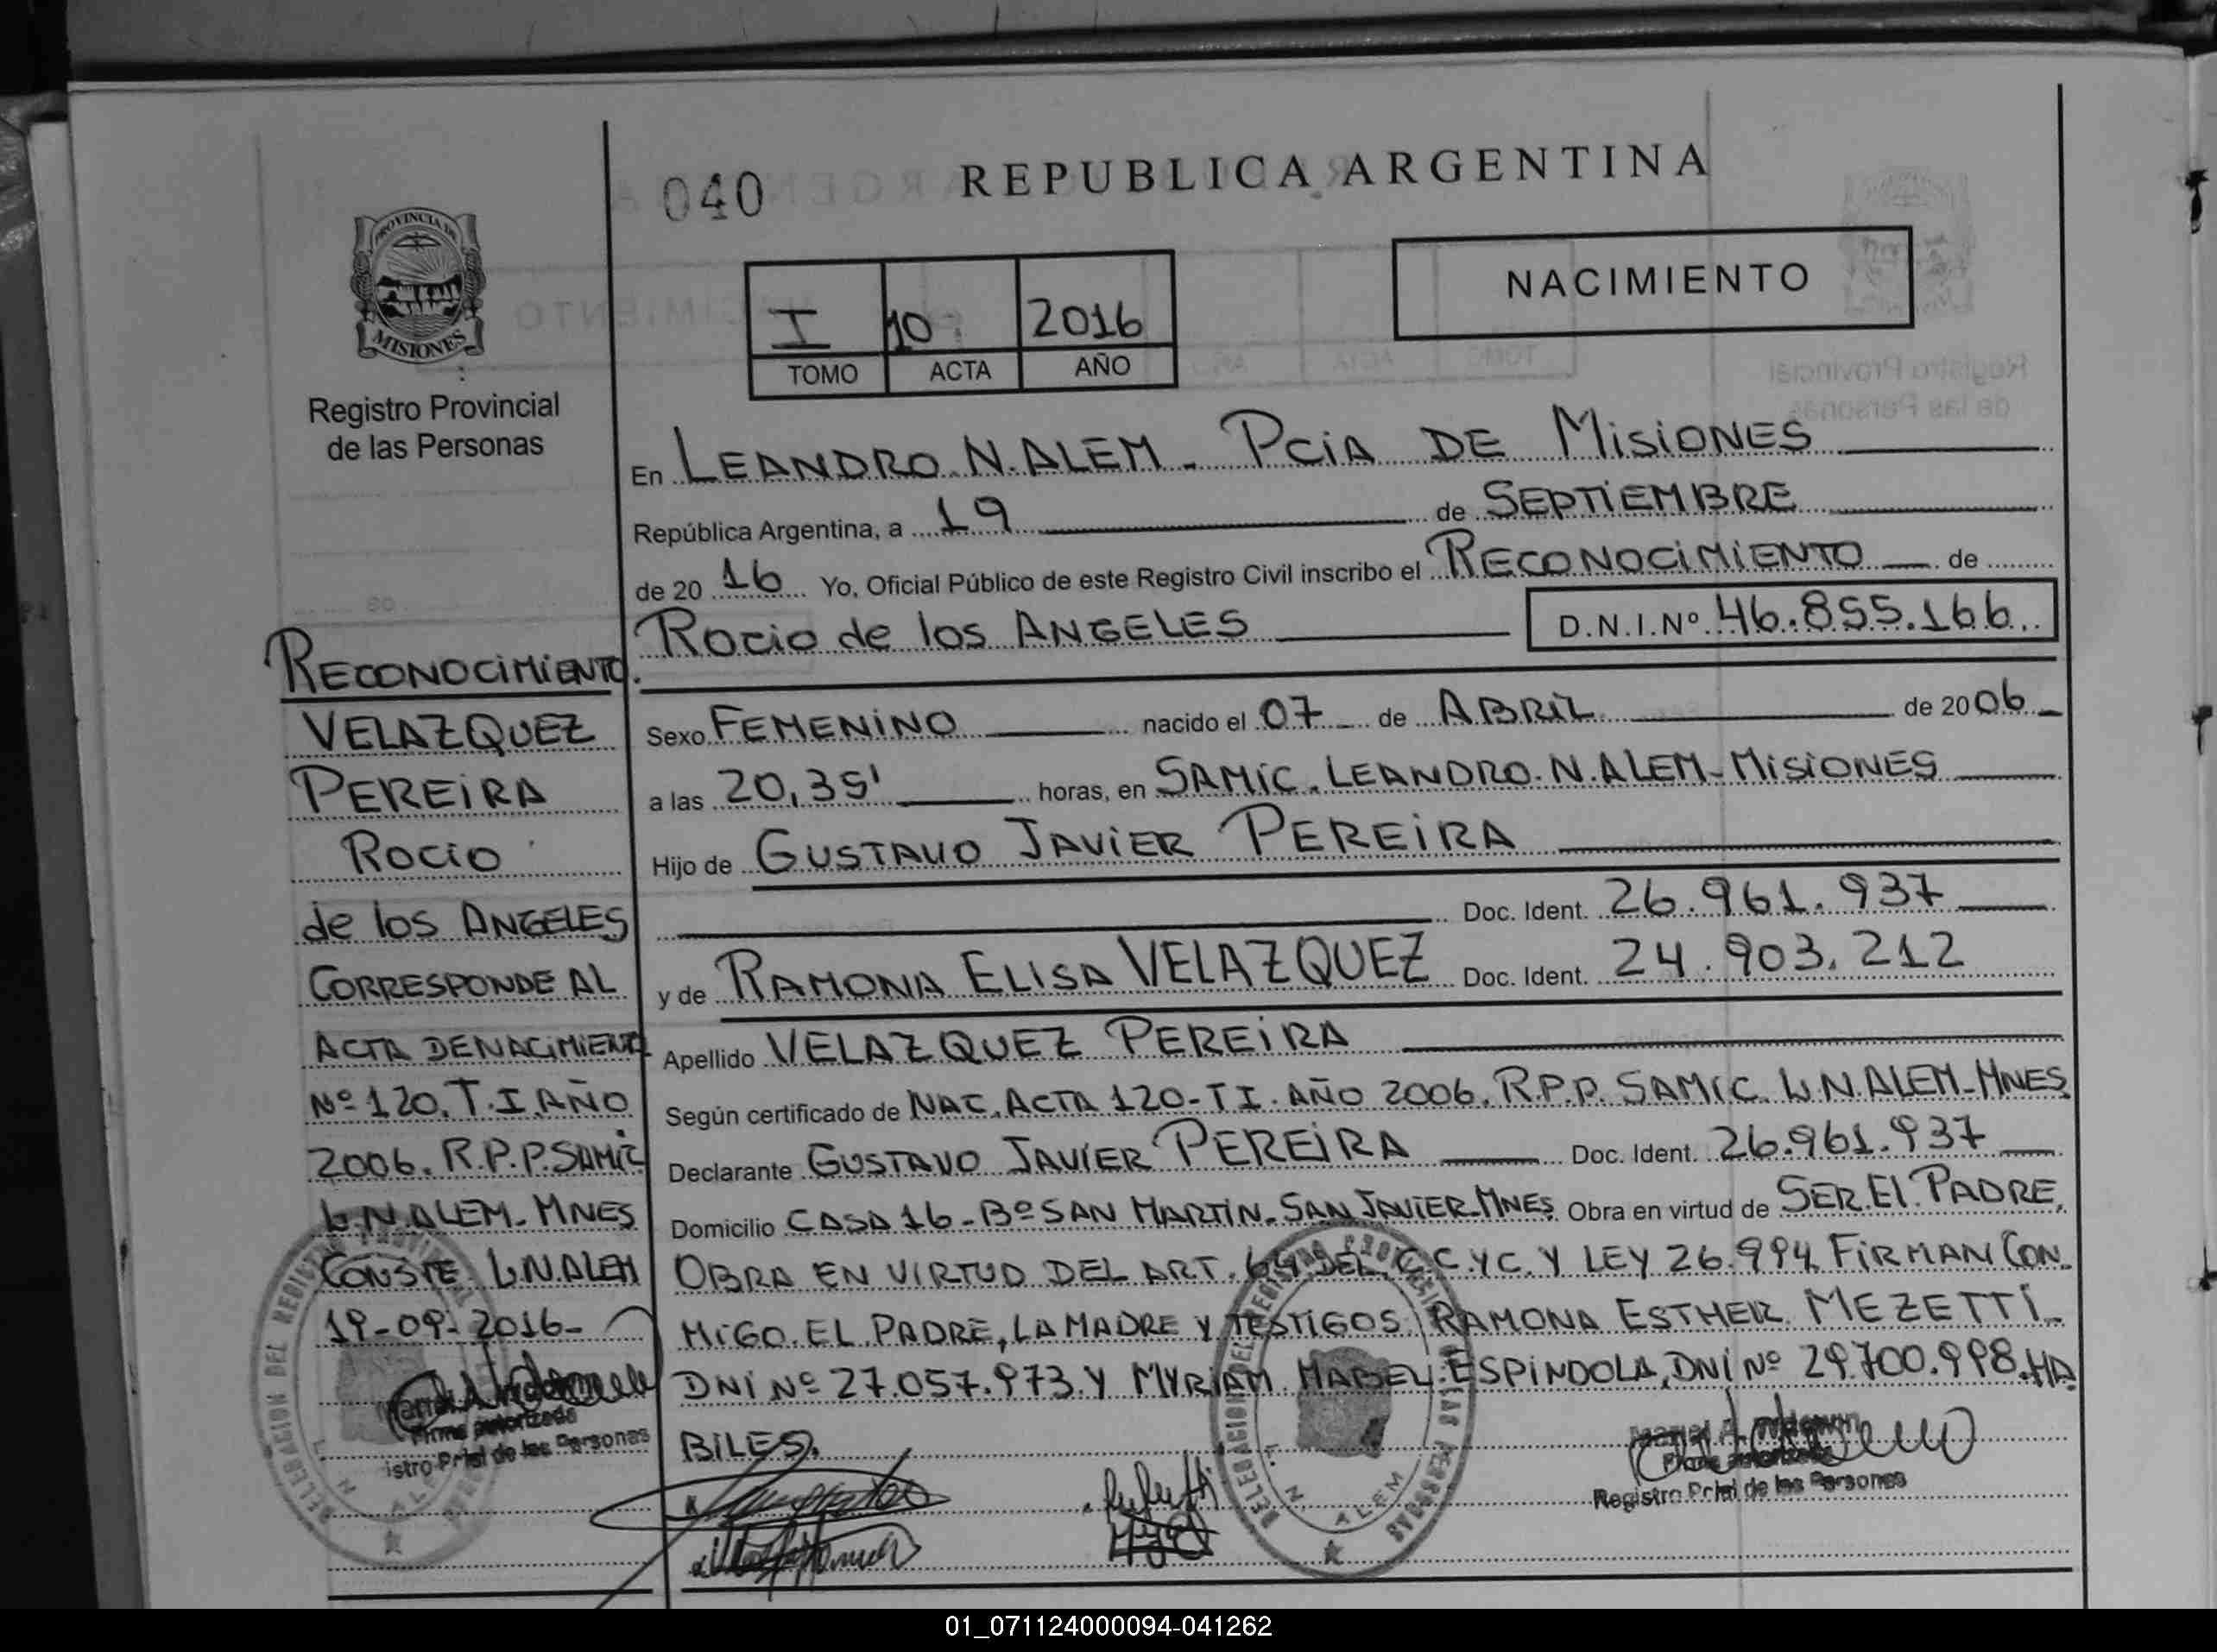 040
REPUBLICA ARGENTINA
PROVINCIA DE
MISIONES
Registro Provincial
de las Personas
NACIMIENTO
I 10 2016
TOMO ACTA AÑO
En LEANDRO.N.ALEM - PCiA DE MiSiONES
República Argentina, a 19 de SEPTiEMBRE
de 2016 Yo, Oficial Público de este Registro Civil inscribo el RECONOCiMiENTO de
Rocio de los ANGELES D.N.I.Nº 46.855.166
Sexo FEMENiNO nacido el 07 de ABRiL de 2006
a las 20,35' horas, en SAMiC. LEANDRO.N.ALEM-MiSiONES
Hijo de GUSTAVO JAViER PEREiRA
Doc. Ident. 26.961.937
y de RAMONA ELISA VELAZQUEZ Doc. Ident. 24.903.212
Apellido VELAZQUEZ PEREiRA
Según certificado de NAC. ACTA 120-T I. AÑO 2006. R.P.P. SAMIC. L.N.ALEM-MNES
Declarante GUSTAVO JAViER PEREiRA Doc. Ident. 26.961.937
Domicilio CASA 16-Bº SAN MARTiN. SAN JAViER-MNES Obra en virtud de SER El PADRE,
OBRA EN VIRTUD DEL ART. 64 DEL C.C.YC. Y LEY 26.994. FiRMAN CON
MiGO. EL PADRE, LA MADRE Y TESTIGOS: RAMONA ESTHER MEZETTi
DNI Nº 27.057.973. Y MYRiAM MABEL ESPiNDOLA, DNi Nº 29.700.998. HA
BiLES.
RECONOCiMiENTO.
VELAZQUEZ
PEREiRA
Rocio
de los ANGELES
CORRESPONDE AL
ACTA DE NACiMiENTO
Nº 120. T.I. AÑO
2006. R.P.P. SAMiC
L.N.ALEM- MNES
CONSTE L.N.ALEM
19-09-2016-
Firma autorizada
istro Prial de las Personas
Registro Prial de las Personas
DELEGACION DEL REGISTRO PROVINCIAL
L. N. ALEM
DELEGACION DEL REGISTRO PROVINCIAL DE LAS PERSONAS
L. N. ALEM
01_071124000094-041262